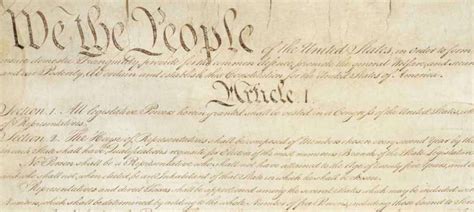 We the People of the United States, in Order to form
insure domestic Tranquility, provide for the common defence, promote the general Welfare, and
and our Posterity, do ordain and establish this Constitution for the United States of America.
Article. I.
Section. 1. All legislative Powers herein granted shall be vested in a Congress of the United States,
of Representatives.
Section. 2. The House of Representatives shall be composed of Members chosen every second Year by the
in each State shall have Qualifications requisite for Electors of the most numerous Branch of the State
No Person shall be a Representative who shall not have attained to the Age of twenty five Years, and
and who shall not, when elected, be an Inhabitant of that State in which he shall be chosen.
Representatives and direct Taxes shall be apportioned among the several States which may be included
Numbers, which shall be determined by adding to the whole Number of free Persons,